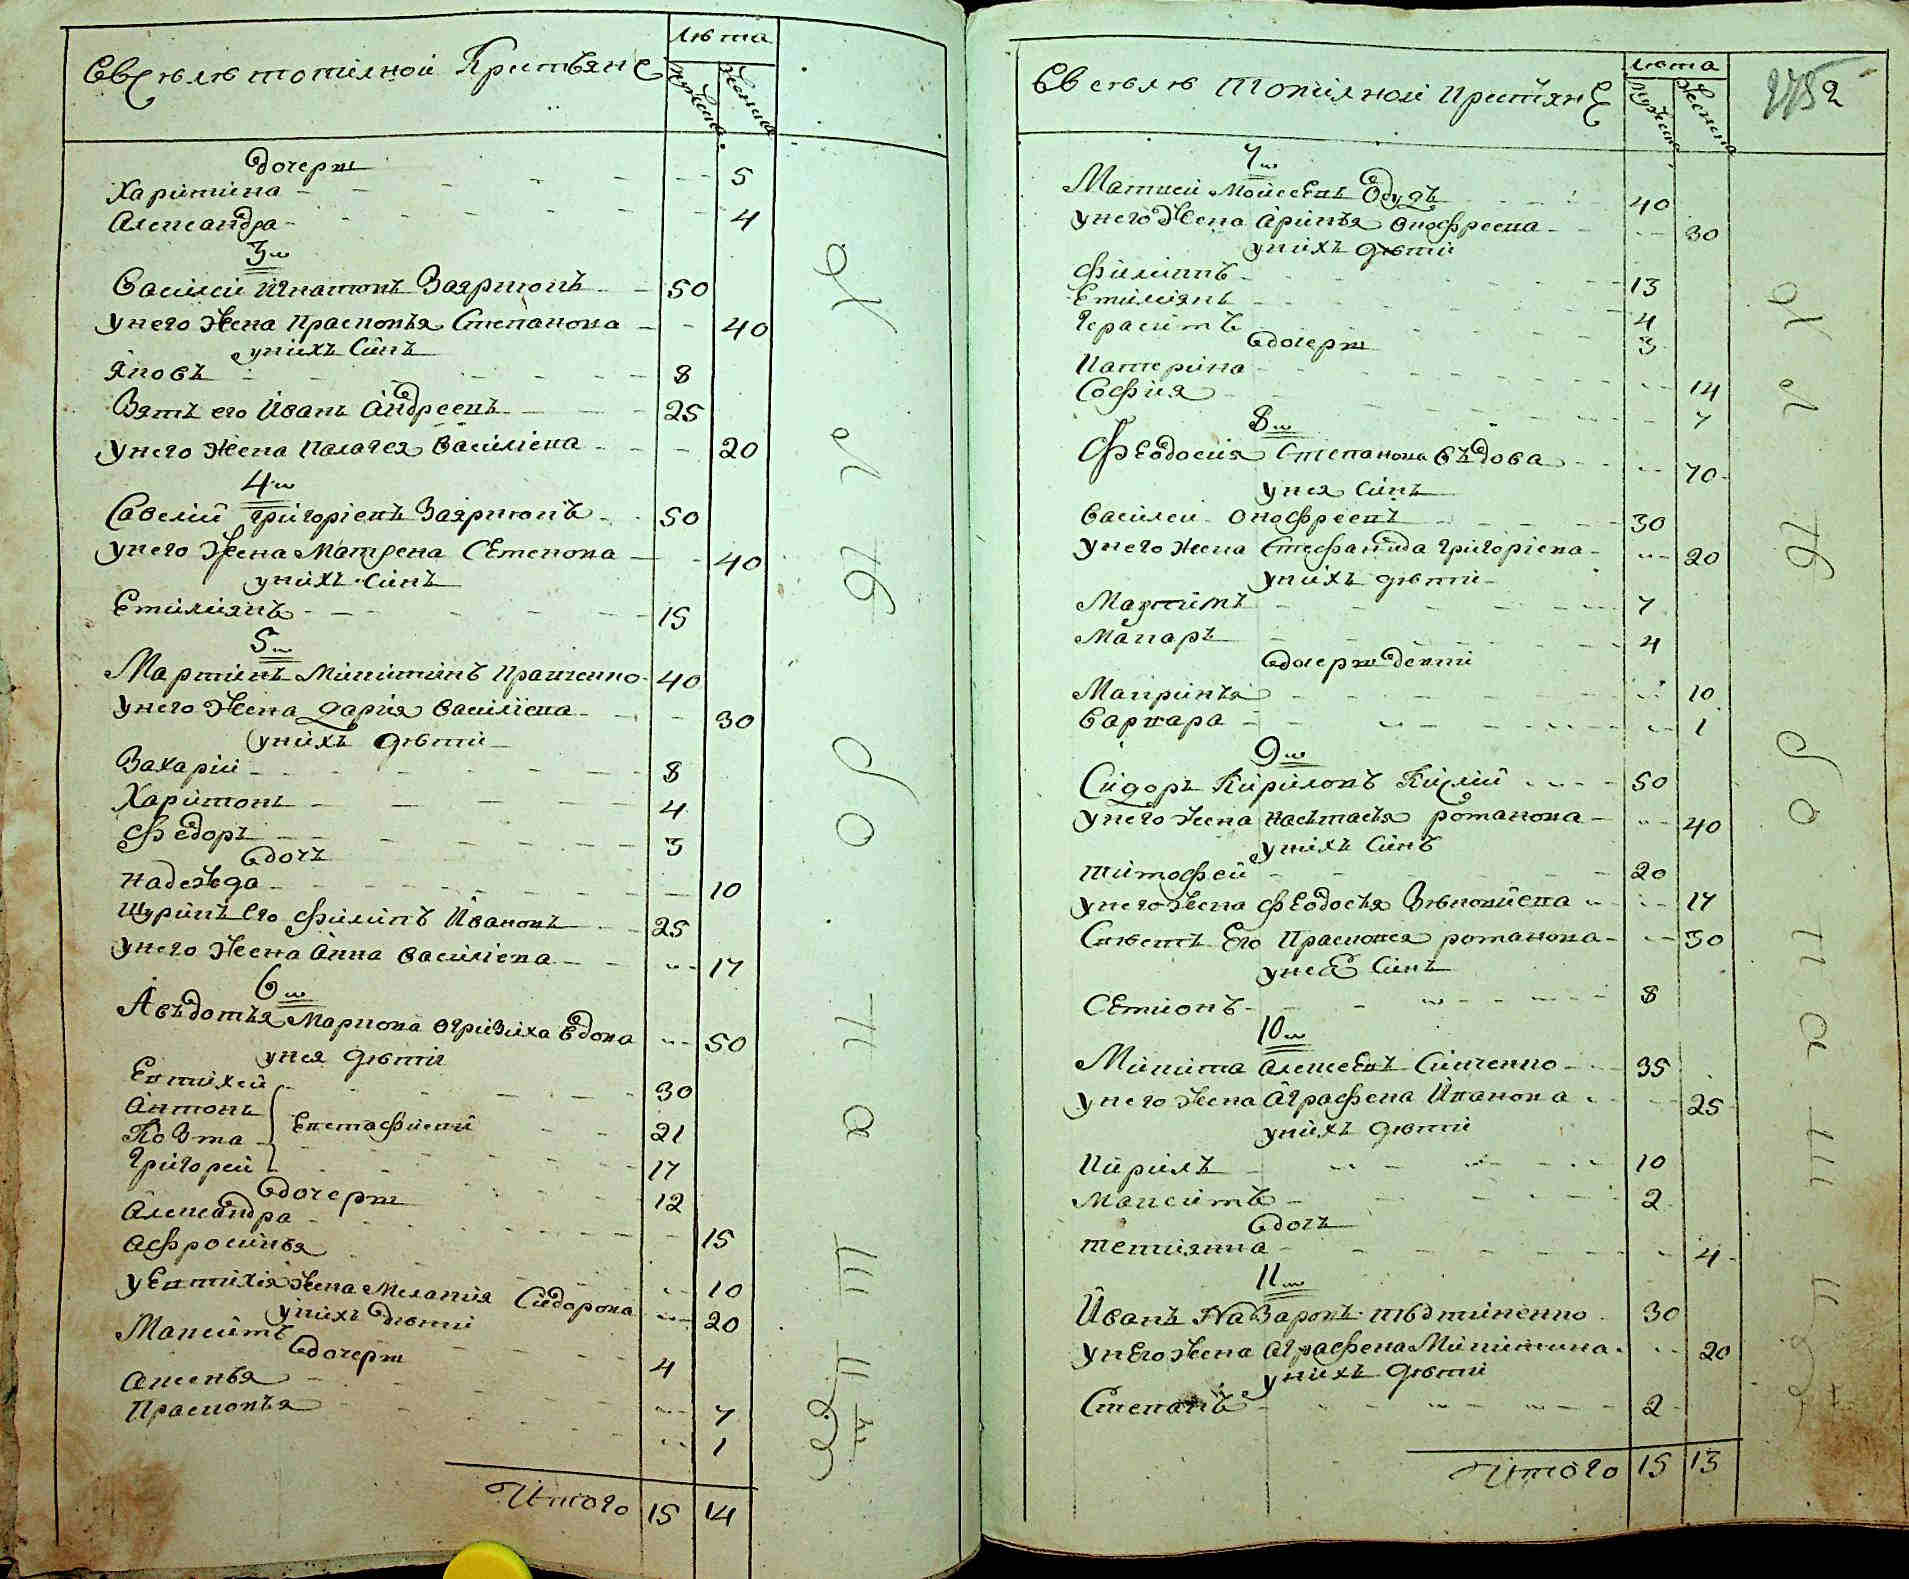 Въ селѣ топилной Крестьяне
лѣта
мужеска
женска
дочеры
Харитина 5
Александра 4
3ш
Василей Игнатовъ Заярнюкъ 50
у него жена Прасковья Степанова 40
у нихъ синъ
Яковъ 8
Зятъ его Иванъ Андреевъ 25
у него жена Палагея Василіева 20
4ш
Савелий Григоріевъ Заярнюкъ 50
у него жена Матрена Семенова 40
у нихъ синъ
Емилиянъ 15
5ш
Мартинъ Микитинъ 40
у него жена Дария Василіева 30
у нихъ дѣти
Захарій 8
Харитонъ 4
Федоръ 3
дочъ
Надежда 10
Шуринъ его Филипъ Ивановъ 25
у него жена Анна Василіева 17
6ш
Авъдотья Маркова вдова 50
у нея дѣти
Евтихей 30
Антонъ 21
Козма Евстафиеви 17
Григорей 12
дочеры
Александра 15
Афросинья 10
у Евтихія жена Мелания Сидорова 20
у нихъ дѣти
Максимъ 4
дочеры
Аксенья 7
Прасковья 1
Итого 15 14
Въ селѣ Топилной Крестьяне
лѣта
мужеска
женска
7ш
Матвей Мойсеевъ 40
у него жена Аринья Онофреева 30
у нихъ дѣти
Филиппъ 13
Емилиянъ 4
Герасимъ 3
дочеры
Катерина 14
София 7
8ш
Феодосия Степанова въдова 70
у нея синъ
Василей Онофреевъ 30
у него жена Стефанида Григоріева 20
у нихъ дѣти
Мартинъ 7
Макаръ 4
дочеры
Маиринья 10
Варвара 1
9ш
Сидоръ Кириловъ Кислий 50
у него жена Настасья Романова 40
у нихъ синъ
Тимофей 20
у него жена Феодосья 17
Его Прасковея Романова 30
у нее синъ
Семионъ 8
10ш
Микита Алексеевъ 35
у него жена Аграфена Иванова 25
у нихъ дѣти
Кирилъ 10
Максимъ 2
дочъ
Тетиянна 4
11ш
Иванъ Назаровъ 30
у него жена Аграфена Микитина 20
у нихъ дѣти
Степанъ 2
Итого 15 13